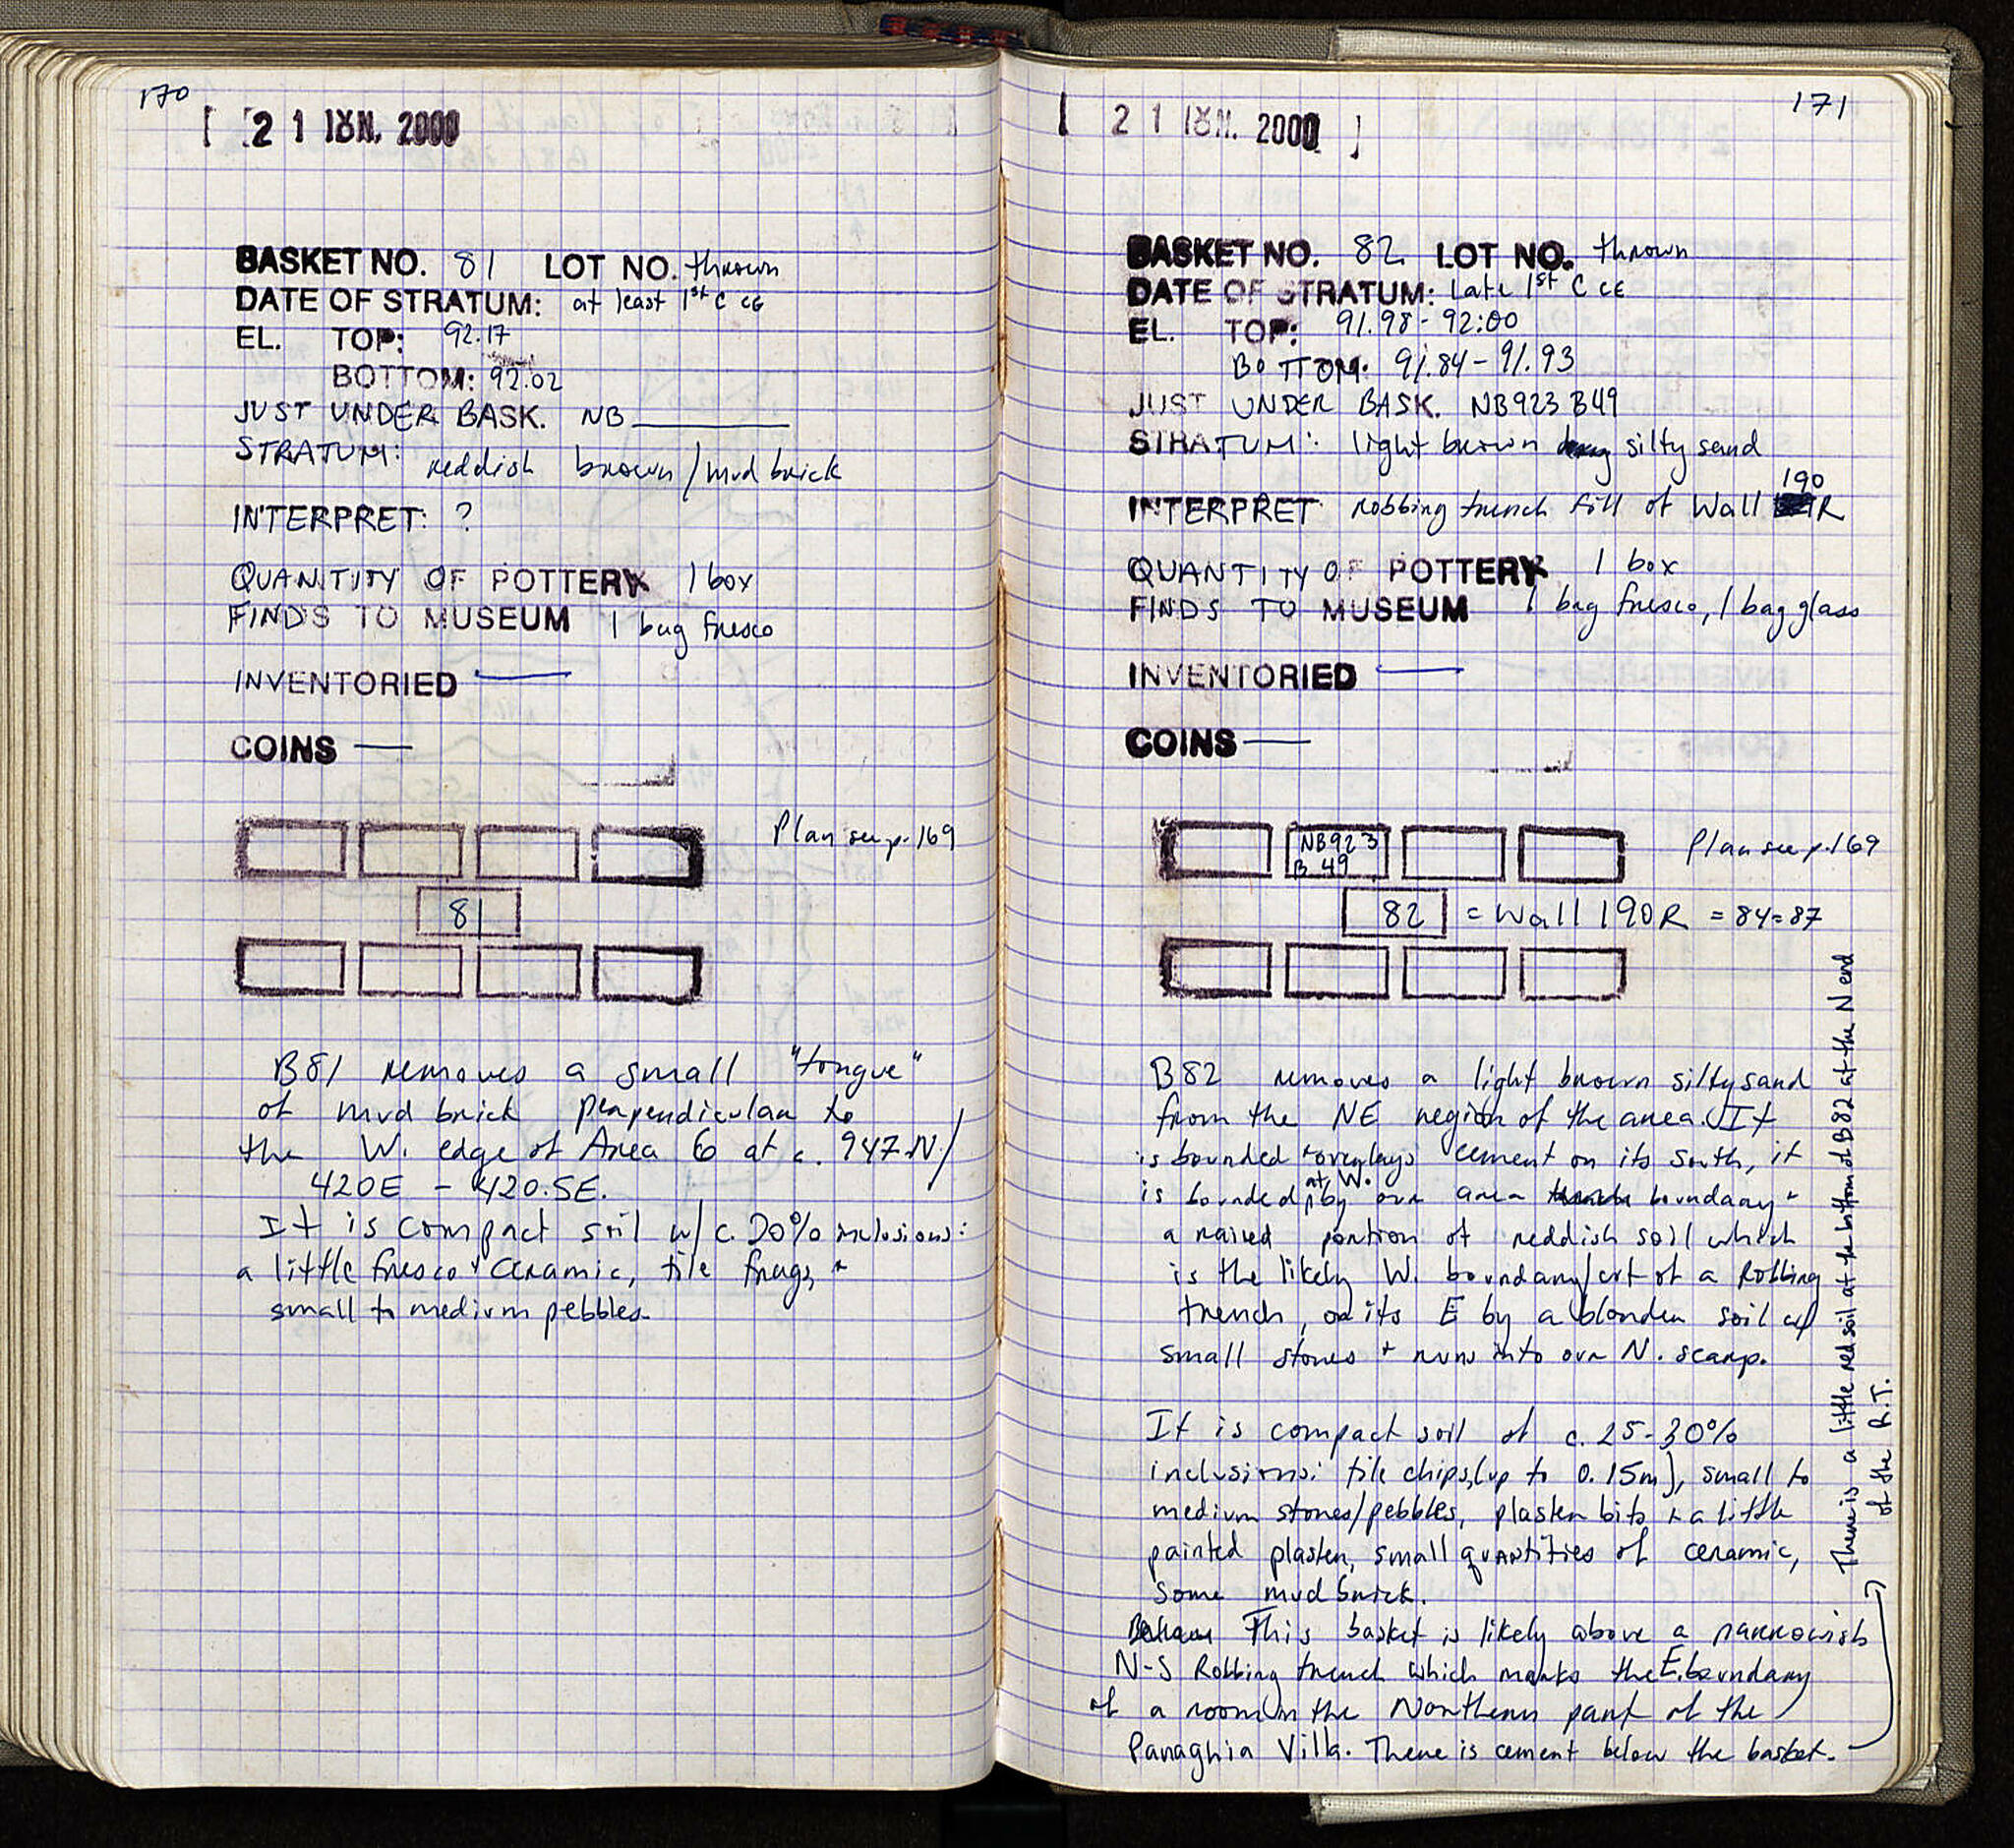 170
[ 2 1 ΙȢΝ. 2000
BASKET NO. 81 LOT NO. thrown
DATE OF STRATUM: at least 1st C CE
EL. TOP: 92.17
BOTTOM: 92.02
JUST UNDER BASK. NB
STRATUM: reddish brown/mud brick
INTERPRET: ?
QUANTITY OF POTTERY 1 box
FINDS TO MUSEUM 1 bag fresco
INVENTORIED —
COINS —
Plan see p. 169
81
B81 removes a small "tongue"
of mud brick perpendicular to
the W. edge of Area 6 at c. 947N/
420E - 420.5E.
It is compact soil w/ c. 20% inclusions:
a little fresco + ceramic, tile frags, +
small to medium pebbles.
171
[ 2 1 ΙȢΝ. 2000 ]
BASKET NO. 82 LOT NO. thrown
DATE OF STRATUM: late 1st C CE
EL. TOP: 91.98 - 92.00
BOTTOM: 91.84 - 91.93
JUST UNDER BASK. NB923 B49
STRATUM: light brown silty sand
INTERPRET robbing trench fill of Wall 190 R
QUANTITY OF POTTERY 1 box
FINDS TO MUSEUM 1 bag fresco, 1 bag glass
INVENTORIED —
COINS —
NB923
B 49
Plan see p. 169
82 = Wall 190R = 84=87
B82 removes a light brown silty sand
from the NE region of the area. It
is bounded + overlays cement on its south, it
is bounded at W. by our area boundary +
a raised portion of reddish soil which
is the likely W. boundary/cut of a Robbing
trench, on its E by a blonder soil w/
small stones + runs into our N. scarp.
It is compact soil of c. 25-30%
inclusions: tile chips, (up to 0.15m), small to
medium stones/pebbles, plaster bits + a little
painted plaster, small quantities of ceramic,
some mudbrick.
This basket is likely above a narrowish
N-S Robbing trench which marks the E. boundary
of a room in the Northern part of the
Panaghia Villa. There is cement below the basket.
There is a little red soil at the bottom of B82 at the N end
of the R.T.